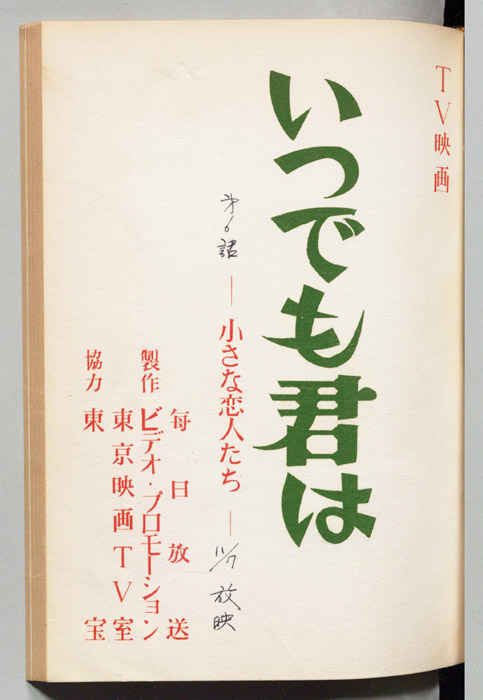 TV映画
いつでも君は
第6話 ― 小さな恋人たち ― 11/17 放映
毎日放送
製作 ビデオ・プロモーション
東京映画TV室
協力 東宝